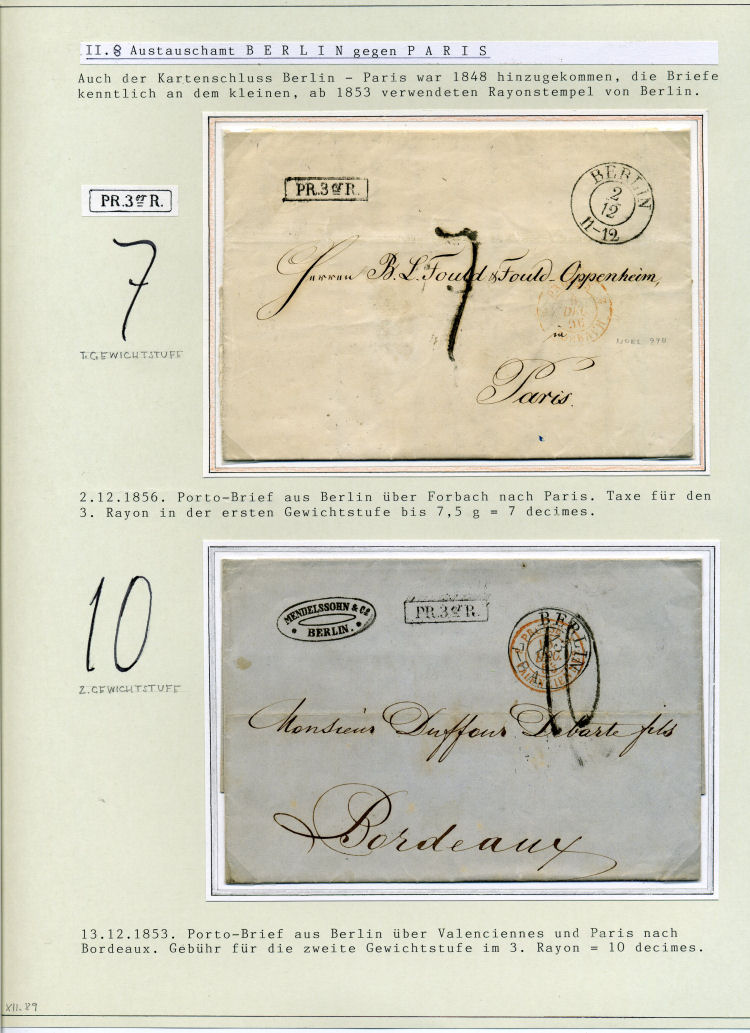 II.8 Austauschamt B E R L I N gegen P A R I S
Auch der Kartenschluss Berlin – Paris war 1848 hinzugekommen, die Briefe
kenntlich an dem kleinen, ab 1853 verwendeten Rayonstempel von Berlin.
PR.3er R.
7
1.GEWICHTSTUFE
PR.3er R.
BERLIN
2
12
11-12
7
Herren B. L. Fould & Fould-Oppenheim,
in
Paris.
2.12.1856. Porto-Brief aus Berlin über Forbach nach Paris. Taxe für den
3. Rayon in der ersten Gewichtstufe bis 7,5 g = 7 decimes.
10
2.GEWICHTSTUFE
MENDELSSOHN & Co
BERLIN.
PR.3er R.
BERLIN
10
Monsieur Duffour Debarte fils
Bordeaux
13.12.1853. Porto-Brief aus Berlin über Valenciennes und Paris nach
Bordeaux. Gebühr für die zweite Gewichtstufe im 3. Rayon = 10 decimes.
XII.89